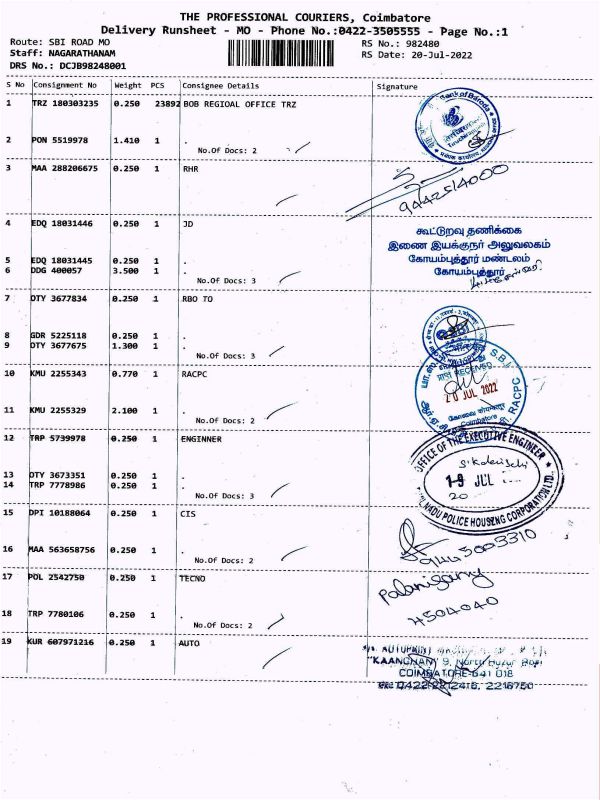 THE PROFESSIONAL COURIERS, Coimbatore
Delivery Runsheet - MO - Phone No.:0422-3505555 - Page No.:1
Route: SBI ROAD MO RS No.: 982480
Staff: NAGARATHANAM RS Date: 20-Jul-2022
DRS No.: DCJB98248001
S No Consignment No Weight PCS Consignee Details Signature
1 TRZ 180303235 0.250 23892 BOB REGIOAL OFFICE TRZ
Bank of Baroda
2 PON 5519978 1.410 1 .
No.Of Docs: 2
3 MAA 288206675 0.250 1 RHR
9442514000
4 EDQ 18031446 0.250 1 JD
கூட்டுறவு தணிக்கை
இணை இயக்குநர் அலுவலகம்
5 EDQ 18031445 0.250 1 .
கோயம்புத்தூர் மண்டலம்
6 DDG 400057 3.500 1 .
கோயம்புத்தூர்
No.Of Docs: 3
7 DTY 3677834 0.250 1 RBO TO
8 GDR 5225118 0.250 1 .
9 DTY 3677675 1.300 1 .
No.Of Docs: 3
S.B.I.
10 KMU 2255343 0.770 1 RACPC
RECEIVED
20 JUL 2022
RACPC
11 KMU 2255329 2.100 1 .
Coimbatore
No.Of Docs: 2
12 TRP 5739978 0.250 1 ENGINNER
OFFICE OF THE EXECUTIVE ENGINEER
13 DTY 3673351 0.250 1 .
14 TRP 7778986 0.250 1 .
19 JUL
20
No.Of Docs: 3
NADU POLICE HOUSING CORPORATION LTD.,
15 DPI 10188064 0.250 1 CIS
9445003310
16 MAA 563658756 0.250 1 .
No.Of Docs: 2
17 POL 2542750 0.250 1 TECNO
Palanisamy
4504040
18 TRP 7780106 0.250 1 .
No.Of Docs: 2
19 KUR 607971216 0.250 1 AUTO
"KAANCHAN" 9, North Huzur Road
COIMBATORE-641 018
0422-2212418, 2216750